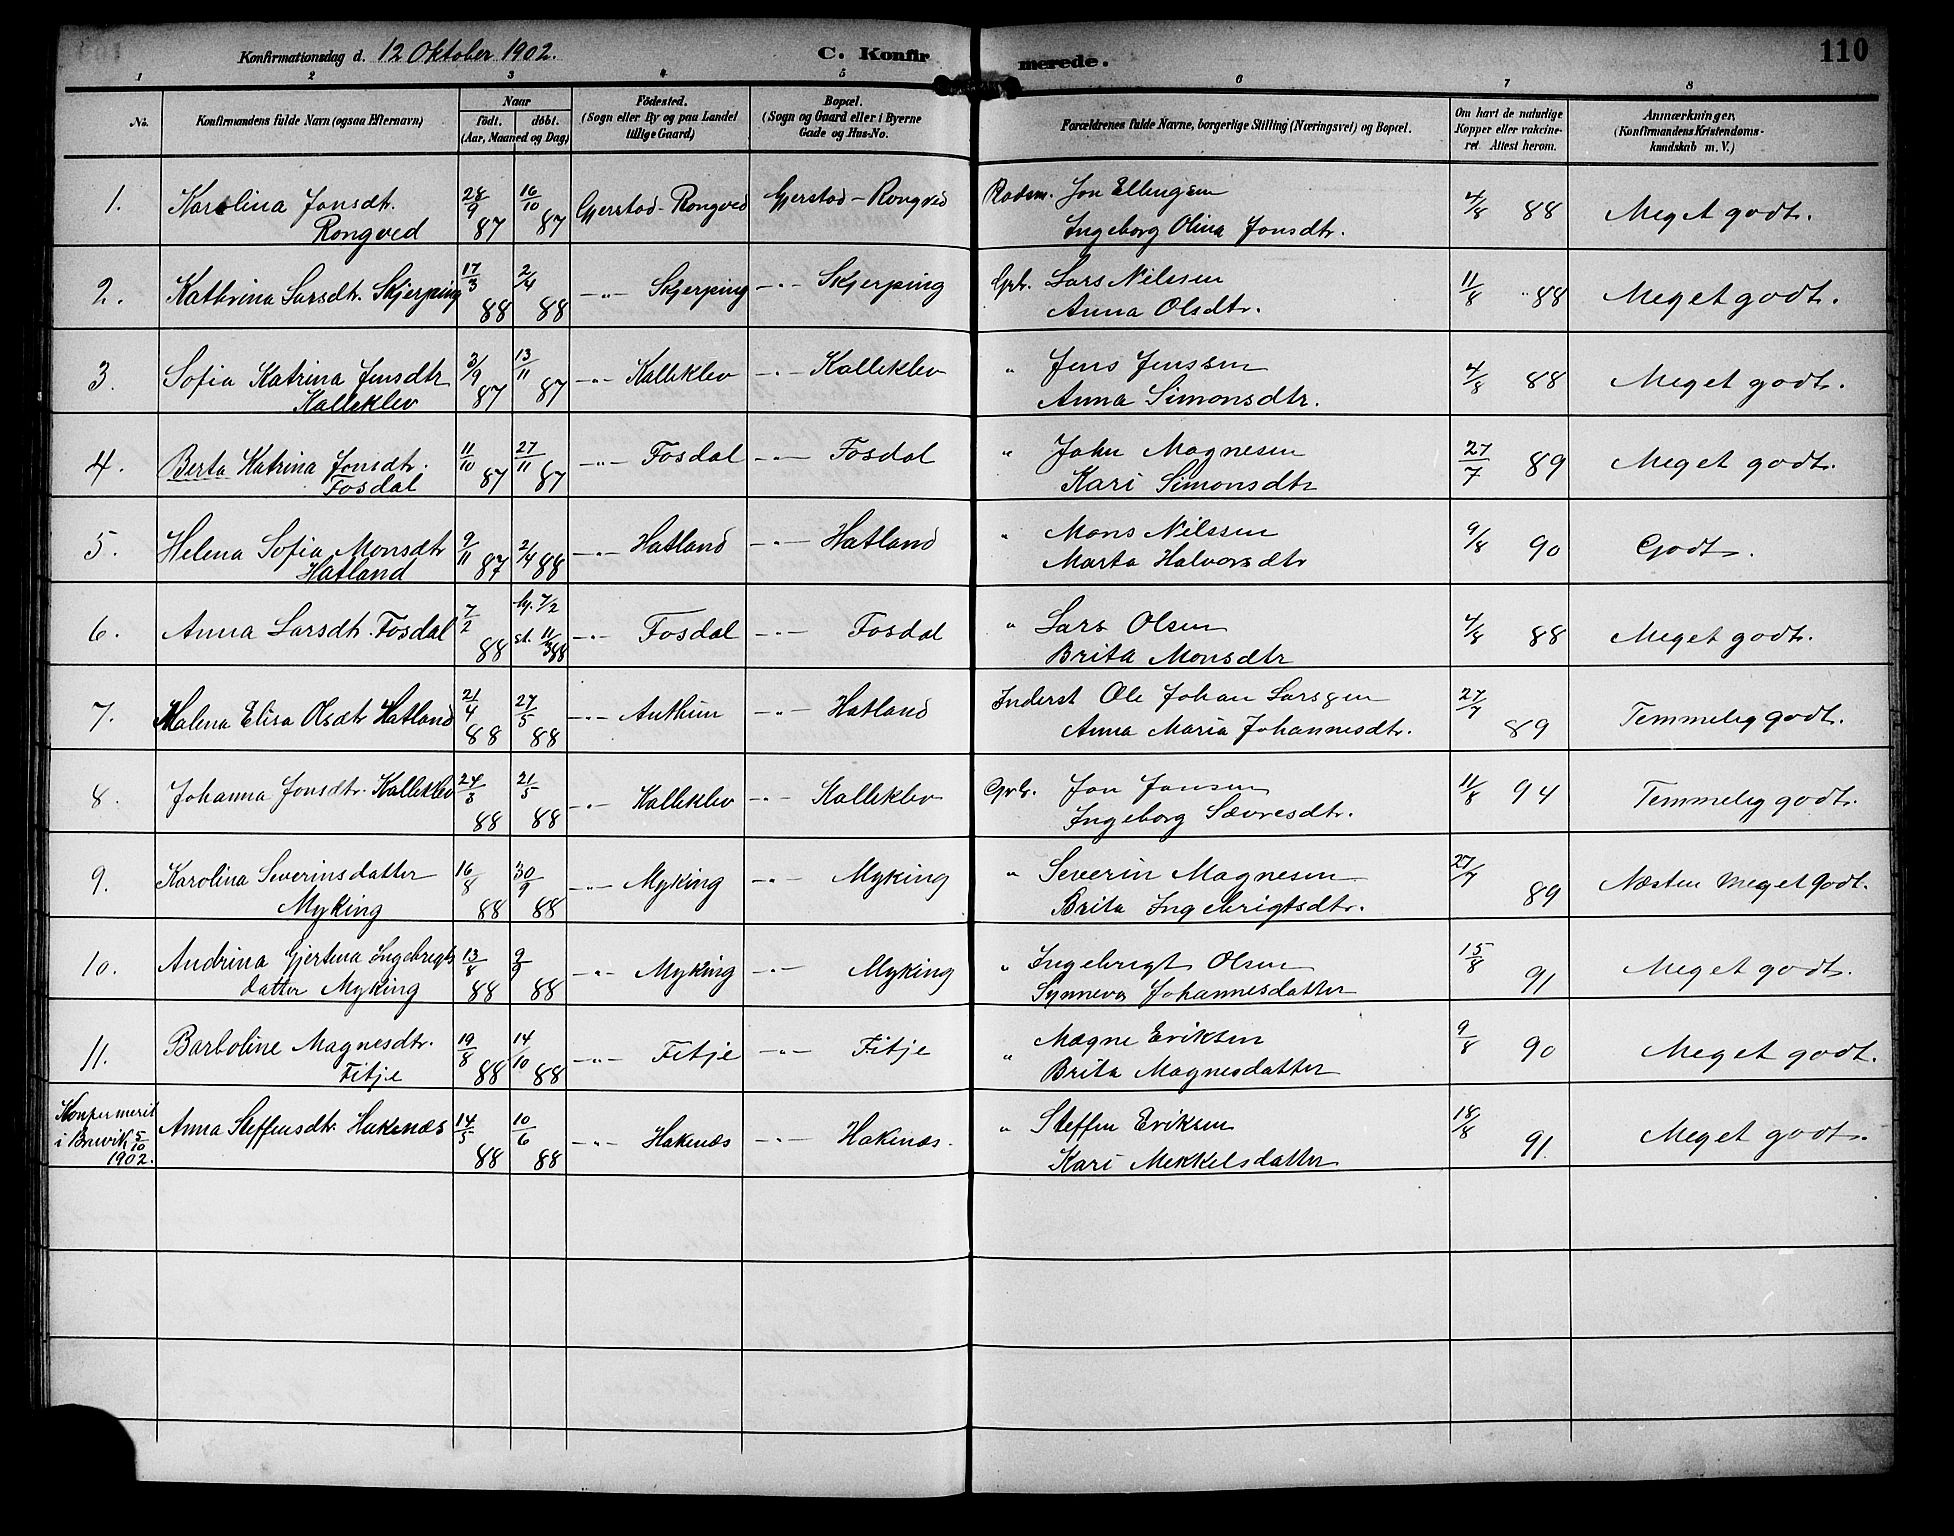 Konfirmationsdag d. 12 Oktober 1902. C. Konfirmerede. 110
1 2 3 4 5 6 7 8
No. Konfirmandens fulde Navn (ogsaa Efternavn) Naar født. døbt. (Aar, Maaned og Dag) Fødested. (Sogn eller By og paa Landet tillige Gaard) Bopæl. (Sogn og Gaard eller i Byerne Gade og Hus-No. Forældrenes fulde Navne, borgerlige Stilling (Næringsvei) og Bopæl. Om havt de naturlige Kopper eller vakcineret. Attest herom. Anmærkninger. (Konfirmandens Kristendomskundskab m. V.)
1. Karolina Jonsdt. 28/9 87 16/10 87 Gjerstad - Rongved Gjerstad - Rongved Jon Ellingsen 4/8 88 Meget godt.
Rongved Ingeborg Olina Jonsdtr.
2. Kathrina Larsdt. Skjerping 17/3 88 2/4 88 -"- Skjerping -"- Skjerping Gbr. Lars Nilssen 11/8 88 Meget godt.
Anna Olsdtr.
3. Sofia Katrina Jensdtr 3/9 87 13/11 87 -"- Kalleklev -"- Kalleklev " Jens Jenssen 4/8 88 Meget godt.
Kalleklev Anna Simonsdtr.
4. Berta Katrina Jonsdtr. 11/10 87 27/11 87 -"- Fosdal -"- Fosdal " John Magnesen 27/7 89 Meget godt.
Fosdal Kari Simonsdtr
5. Helena Sofia Monsdtr 9/11 87 2/4 88 -"- Hatland -"- Hatland " Mons Nilssen 9/8 90 Godt.
Hatland Marta Halvorsdtr
6. Anna Larsdtr. Fosdal 7/2 88 hj. 7/2 st. 11/3 88 -"- Fosdal -"- Fosdal " Lars Olsen 4/8 88 Meget godt.
Brita Monsdtr
7. Malena Elisa Olsdtr Hatland 21/4 88 27/5 88 -"- Anthun -"- Hatland Inderst Ole Johan Larsgen 27/7 89 Temmelig godt.
Anna Maria Johannesdtr.
8. Johanna Jonsdtr. Kalleklev 24/3 88 21/5 88 -"- Kalleklev -"- Kalleklev Gbr. Jon Jonsen 11/8 94 Temmelig godt.
Ingeborg Sævresdtr.
9. Karolina Severinsdatter 16/8 88 30/9 88 -"- Myking -"- Myking " Severin Magnesen 27/7 89 Næsten meget godt.
Myking Brita Ingebrigtsdtr.
10. Andrina Gjertina Ingebrigts 13/8 88 9/9 88 -"- Myking -"- Myking " Ingebrigt Olsen 15/8 91 Meget godt.
datter Myking Synneva Johannesdatter
11. Barboline Magnesdtr. 19/8 88 14/10 88 -"- Fitje -"- Fitje " Magne Eriksen 9/8 90 Meget godt.
Fitje Brita Magnesdatter
Konfirmerit i Bruvik 5/10 1902. Anna Steffensdt. Hakenæs 14/5 88 10/6 88 -"- Hakenæs -"- Hakenæs. " Steffen Eriksen 18/8 91. Meget godt.
Kari Mekkelsdatter